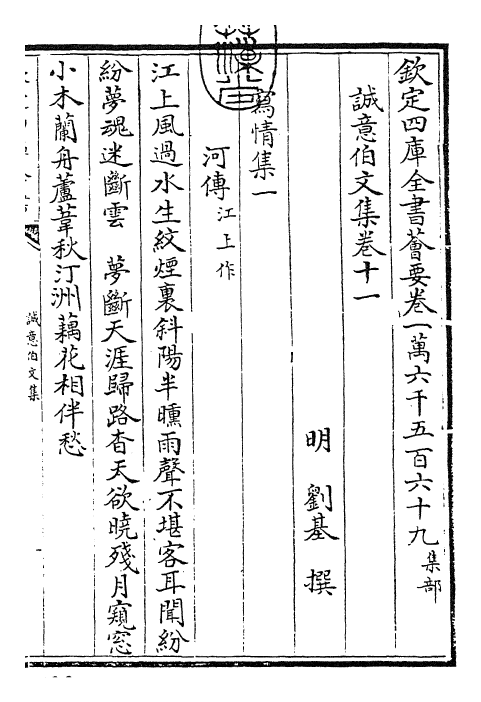 欽定四庫全書薈要卷一萬六千五百六十九集部
誠意伯文集卷十一
明 劉基 撰
寫情集一
河傳江上作
江上風過水生紋煙裏斜陽半曛雨聲不堪客耳聞紛
紛夢魂迷斷雲 夢斷天涯歸路杳天欲曉殘月窺窓
小木蘭舟蘆葦秋汀洲藕花相伴愁
誠意伯文集